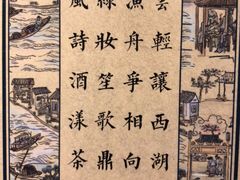 雲輕讓西湖
漁舟爭相向
綠妝笙歌鼎
風詩酒漾茶